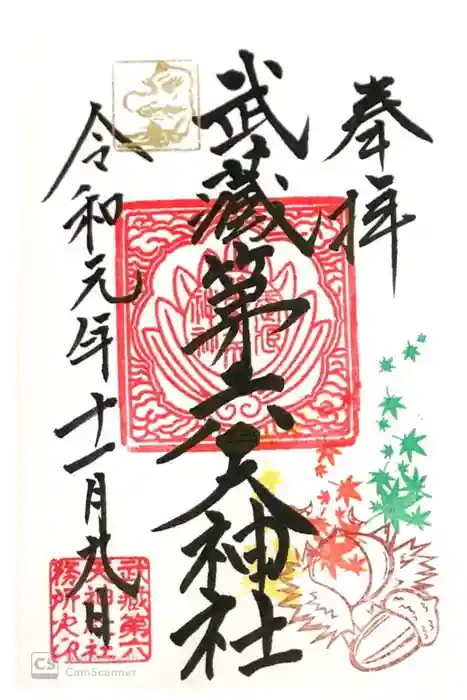 奉拝
武蔵第六天神社
令和元年十一月九日
武蔵第六
天神社
務所之印
CS CamScanner